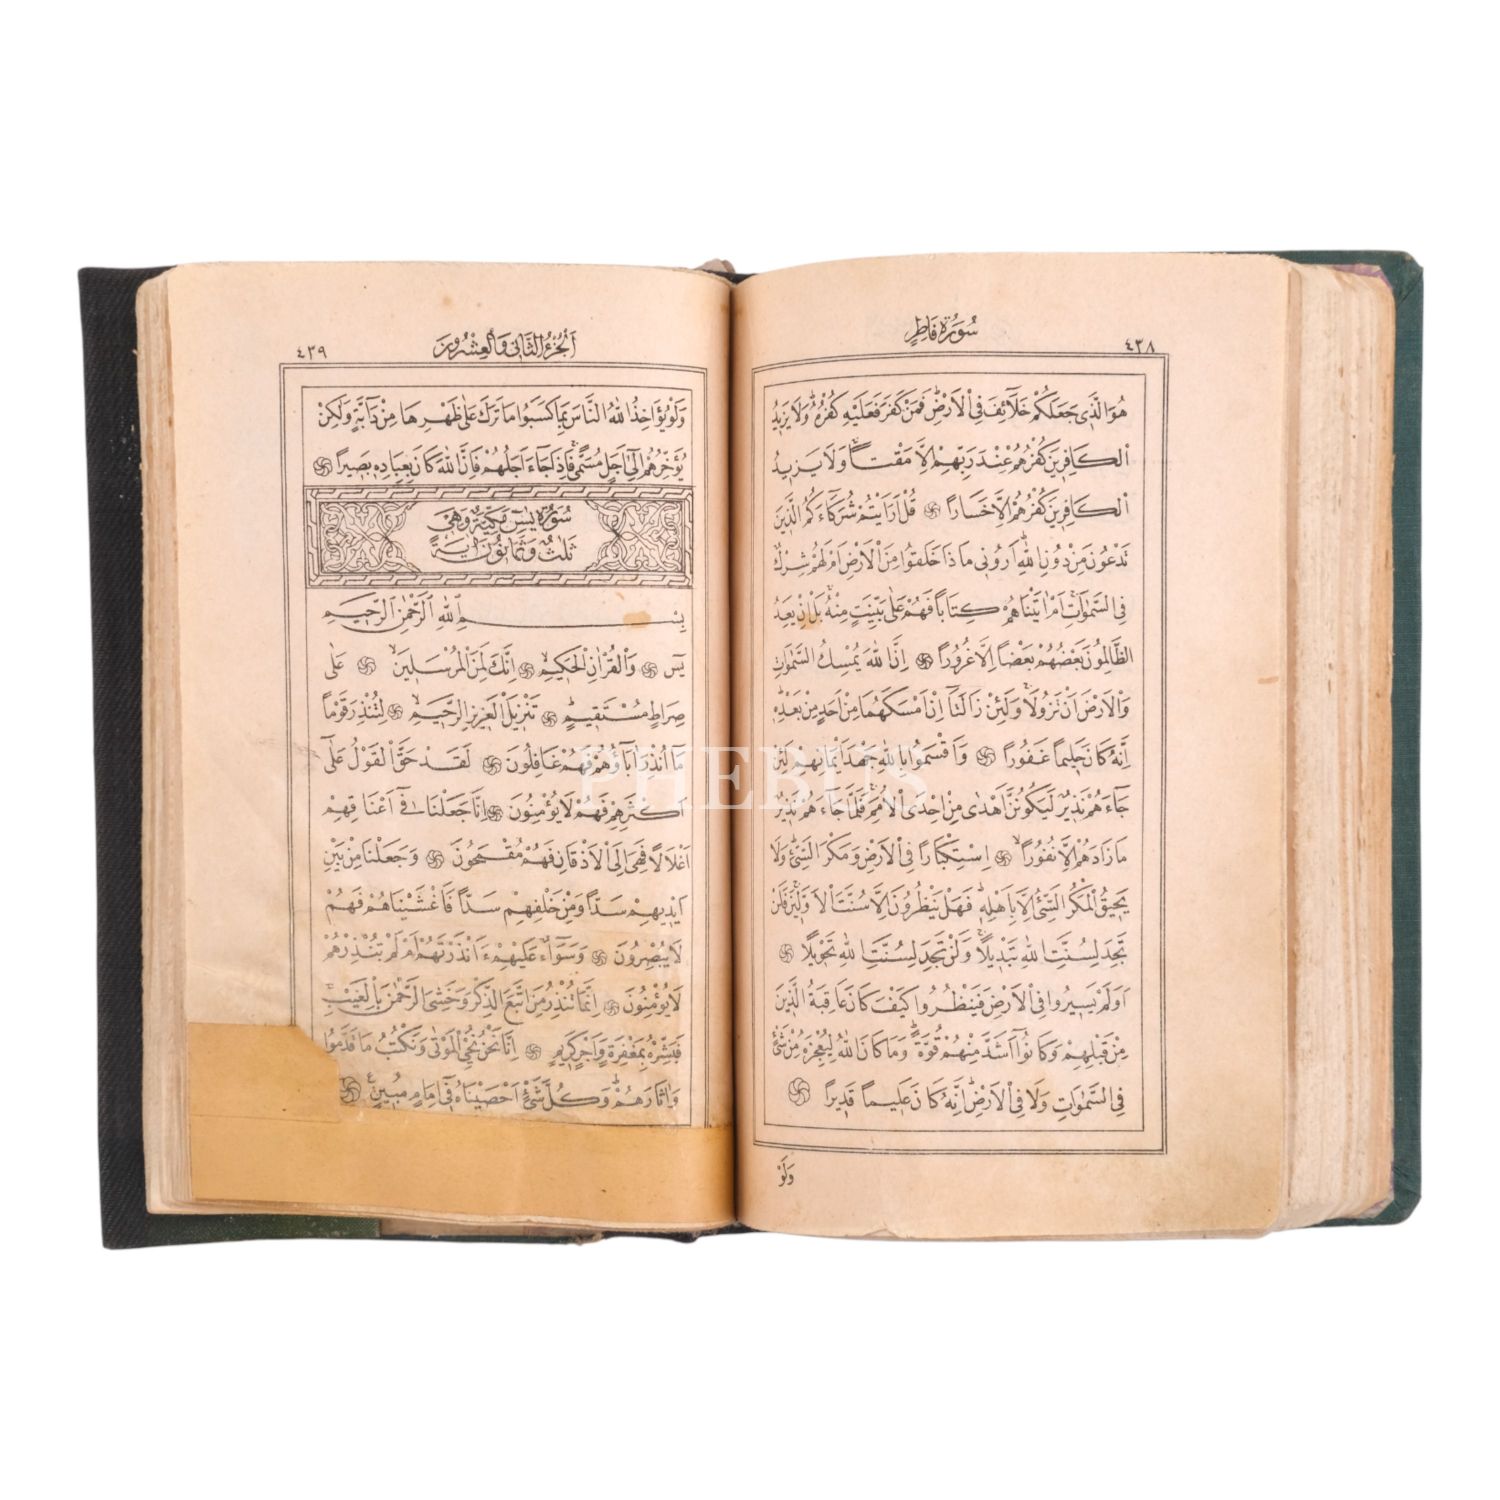 سُورَةُ فَاطِرٍ
٤٣٨
هُوَ الَّذٖي جَعَلَكُمْ خَلَٓائِفَ فِي الْاَرْضِ فَمَنْ كَفَرَ فَعَلَيْهِ كُفْرُهُ وَلَا يَزٖيدُ
الْكَافِرٖينَ كُفْرُهُمْ عِنْدَ رَبِّهِمْ اِلَّا مَقْتاً وَلَا يَزٖيدُ
الْكَافِرٖينَ كُفْرُهُمْ اِلَّا خَسَاراً قُلْ اَرَاَيْتُمْ شُرَكَٓاءَكُمُ الَّذٖينَ
تَدْعُونَ مِنْ دُونِ اللّٰهِ اَرُونٖي مَاذَا خَلَقُوا مِنَ الْاَرْضِ اَمْ لَهُمْ شِرْكٌ
فِي السَّمٰوَاتِ اَمْ اٰتَيْنَاهُمْ كِتَاباً فَهُمْ عَلٰى بَيِّنَتٍ مِنْهُ بَلْ اِنْ يَعِدُ
الظَّالِمُونَ بَعْضُهُمْ بَعْضاً اِلَّا غُرُوراً اِنَّ اللّٰهَ يُمْسِكُ السَّمٰوَاتِ
وَالْاَرْضَ اَنْ تَزُولَا وَلَئِنْ زَالَتَٓا اِنْ اَمْسَكَهُمَا مِنْ اَحَدٍ مِنْ بَعْدِهٖ
اِنَّهُ كَانَ حَلٖيماً غَفُوراً وَاَقْسَمُوا بِاللّٰهِ جَهْدَ اَيْمَانِهِمْ لَئِنْ
جَٓاءَهُمْ نَذٖيرٌ لَيَكُونُنَّ اَهْدٰى مِنْ اِحْدَى الْاُمَمِ فَلَمَّا جَٓاءَهُمْ نَذٖيرٌ
مَا زَادَهُمْ اِلَّا نُفُوراً اِسْتِكْبَاراً فِي الْاَرْضِ وَمَكْرَ السَّيِّئِ وَلَا
يَحٖيقُ الْمَكْرُ السَّيِّئُ اِلَّا بِاَهْلِهٖ فَهَلْ يَنْظُرُونَ اِلَّا سُنَّتَ الْاَوَّلٖينَ فَلَنْ
تَجِدَ لِسُنَّتِ اللّٰهِ تَبْدٖيلاً وَلَنْ تَجِدَ لِسُنَّتِ اللّٰهِ تَحْوٖيلاً
اَوَلَمْ يَسٖيرُوا فِي الْاَرْضِ فَيَنْظُرُوا كَيْفَ كَانَ عَاقِبَةُ الَّذٖينَ
مِنْ قَبْلِهِمْ وَكَانُٓوا اَشَدَّ مِنْهُمْ قُوَّةً وَمَا كَانَ اللّٰهُ لِيُعْجِزَهُ مِنْ شَيْءٍ
فِي السَّمٰوَاتِ وَلَا فِي الْاَرْضِ اِنَّهُ كَانَ عَلٖيماً قَدٖيراً
وَلَوْ
اَلْجُزْءُ الثَّانٖي وَالْعِشْرُونَ
٤٣٩
وَلَوْ يُؤَاخِذُ اللّٰهُ النَّاسَ بِمَا كَسَبُوا مَا تَرَكَ عَلٰى ظَهْرِهَا مِنْ دَٓابَّةٍ وَلٰكِنْ
يُؤَخِّرُهُمْ اِلٰٓى اَجَلٍ مُسَمًّى فَاِذَا جَٓاءَ اَجَلُهُمْ فَاِنَّ اللّٰهَ كَانَ بِعِبَادِهٖ بَصٖيراً
سُورَةُ يٰسٓ مَكِّيَّةٌ وَهِيَ
ثَلٰثٌ وَثَمَانُونَ اٰيَةً
بِسْمِ اللّٰهِ الرَّحْمٰنِ الرَّحٖيمِ
يٰسٓ وَالْقُرْاٰنِ الْحَكٖيمِ اِنَّكَ لَمِنَ الْمُرْسَلٖينَ عَلٰى
صِرَاطٍ مُسْتَقٖيمٍ تَنْزٖيلَ الْعَزٖيزِ الرَّحٖيمِ لِتُنْذِرَ قَوْماً
مَٓا اُنْذِرَ اٰبَٓاؤُهُمْ فَهُمْ غَافِلُونَ لَقَدْ حَقَّ الْقَوْلُ عَلٰٓى
اَكْثَرِهِمْ فَهُمْ لَا يُؤْمِنُونَ اِنَّا جَعَلْنَا فٖٓي اَعْنَاقِهِمْ
اَغْلَالاً فَهِيَ اِلَى الْاَذْقَانِ فَهُمْ مُقْمَحُونَ وَجَعَلْنَا مِنْ بَيْنِ
اَيْدٖيهِمْ سَدّاً وَمِنْ خَلْفِهِمْ سَدّاً فَاَغْشَيْنَاهُمْ فَهُمْ
لَا يُبْصِرُونَ وَسَوَٓاءٌ عَلَيْهِمْ ءَاَنْذَرْتَهُمْ اَمْ لَمْ تُنْذِرْهُمْ
لَا يُؤْمِنُونَ اِنَّمَا تُنْذِرُ مَنِ اتَّبَعَ الذِّكْرَ وَخَشِيَ الرَّحْمٰنَ بِالْغَيْبِ
فَبَشِّرْهُ بِمَغْفِرَةٍ وَاَجْرٍ كَرٖيمٍ اِنَّا نَحْنُ نُحْيِ الْمَوْتٰى وَنَكْتُبُ مَا قَدَّمُوا
وَاٰثَارَهُمْ وَكُلَّ شَيْءٍ اَحْصَيْنَاهُ فٖٓي اِمَامٍ مُبٖينٍ ع
PHEBUS